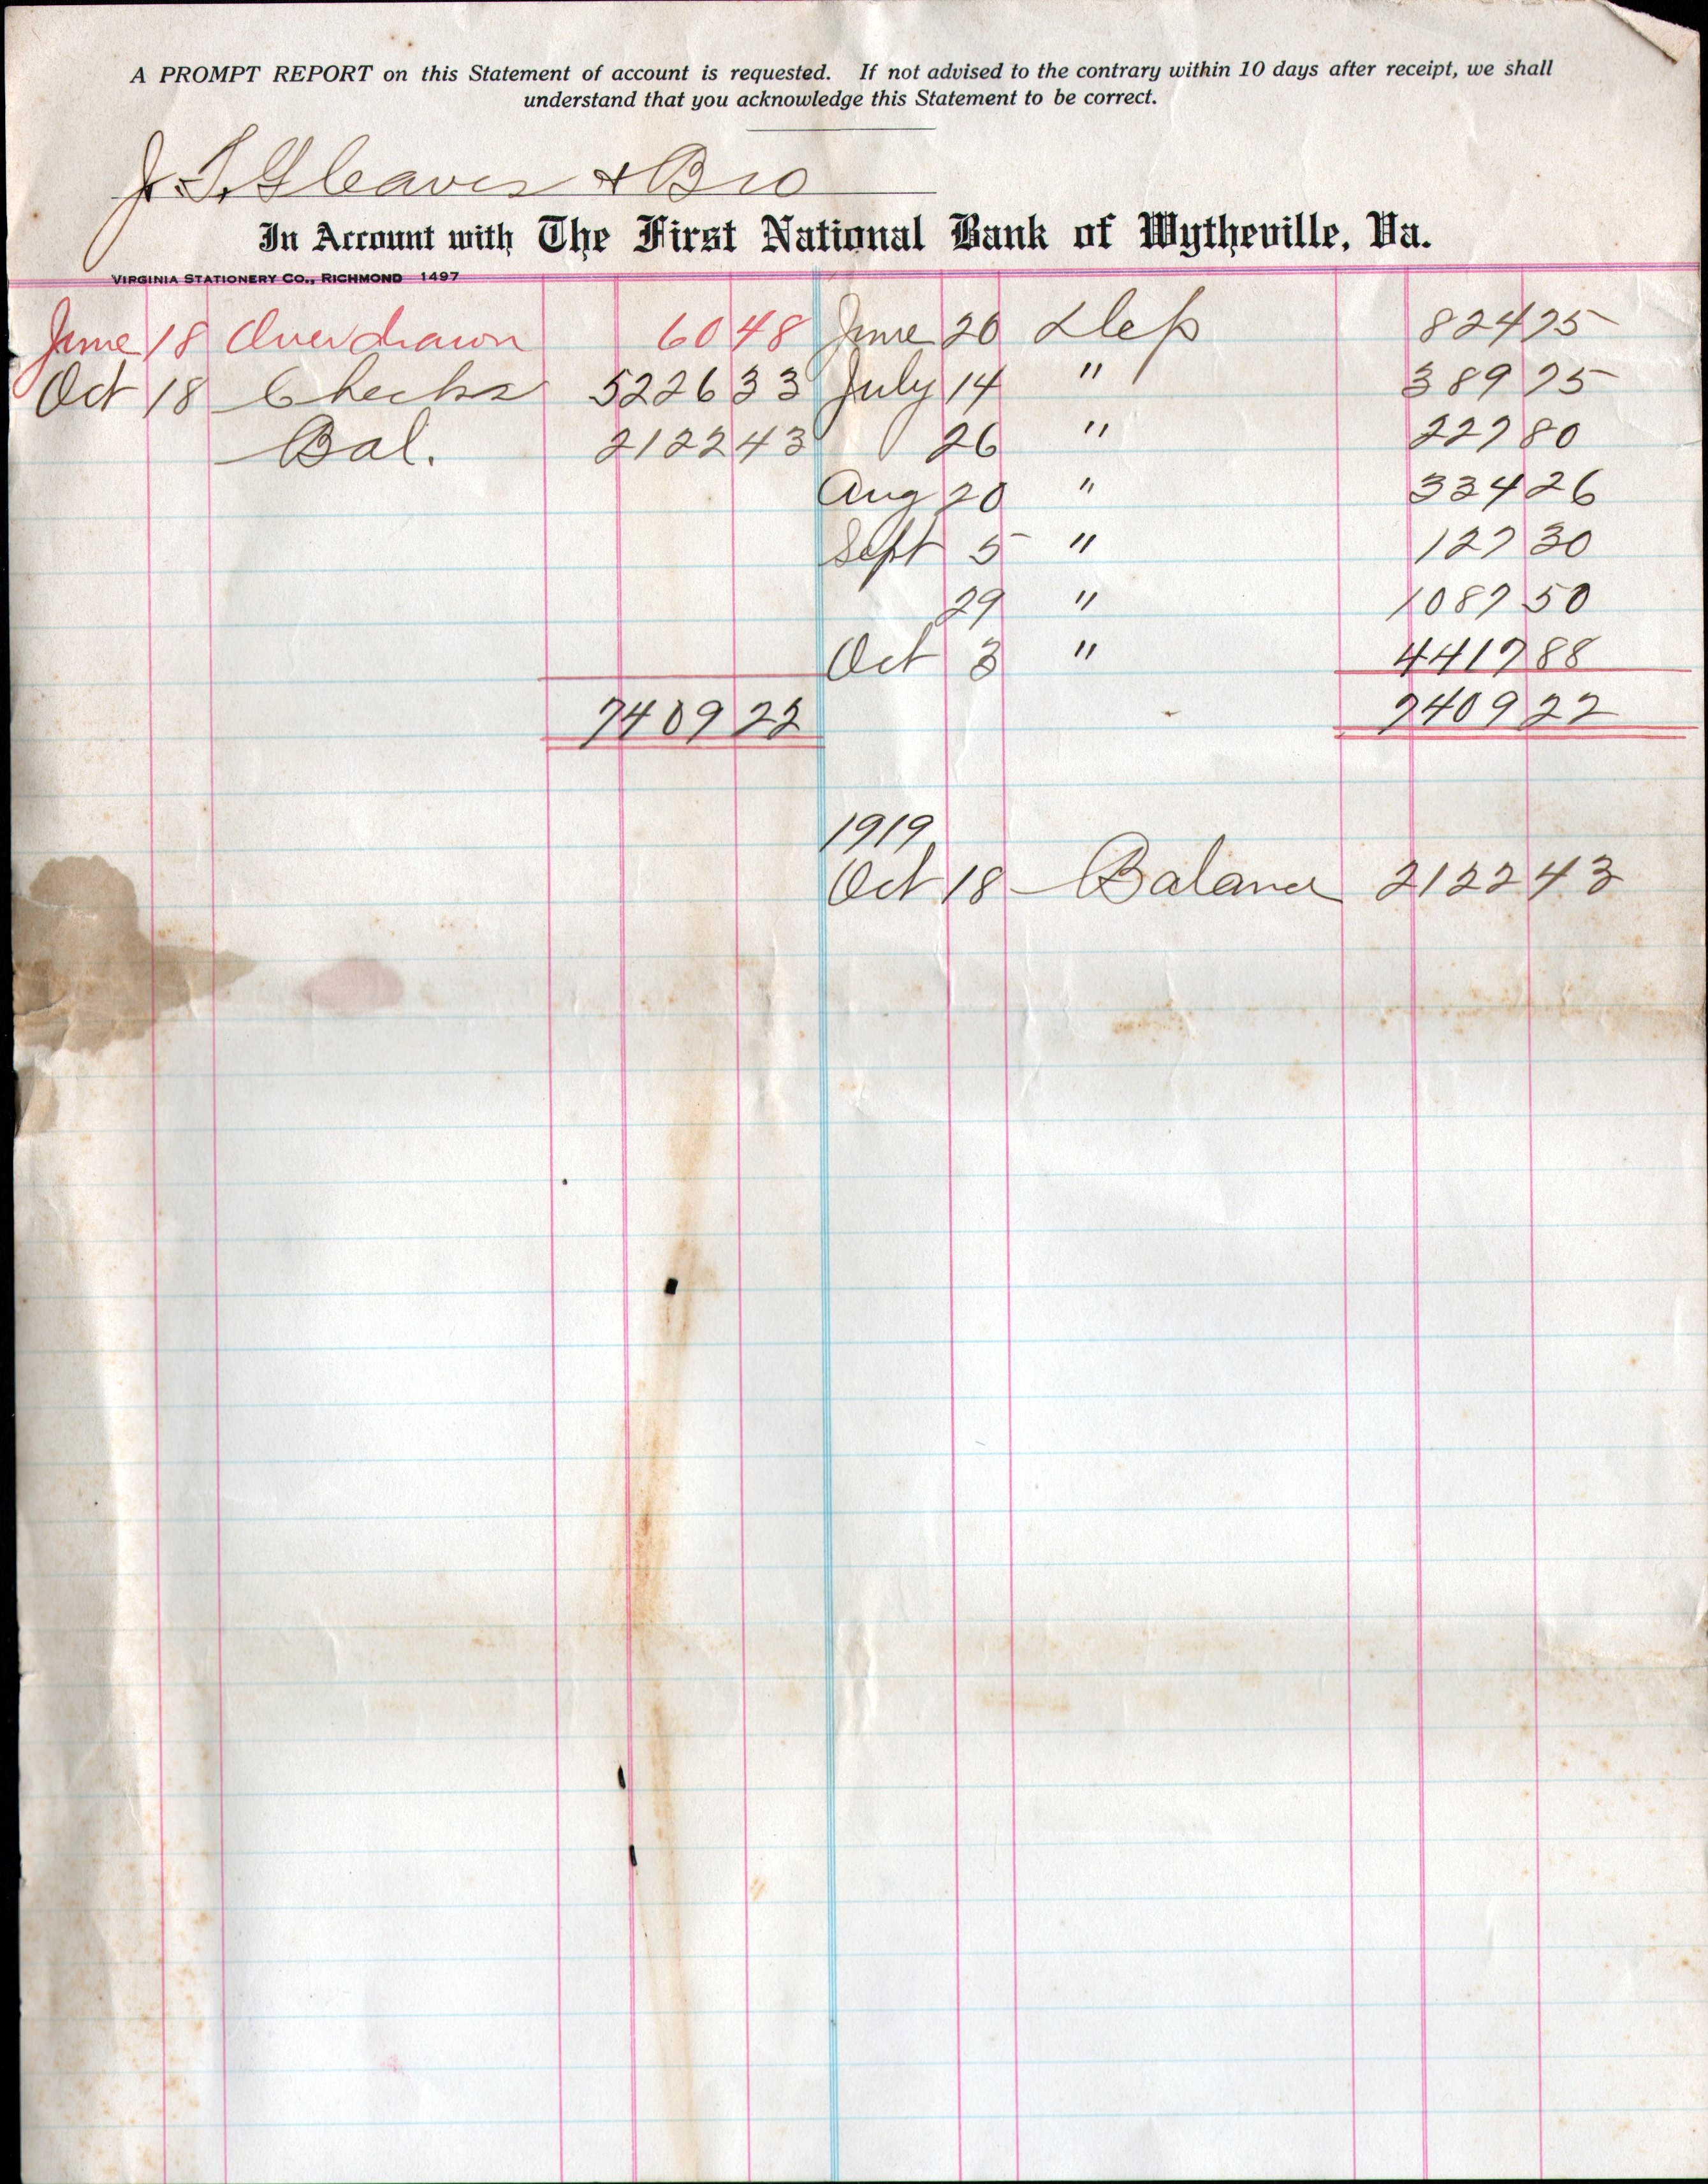 A PROMPT REPORT on this Statement of account is requested. If not advised to the contrary within 10 days after receipt, we shall
understand that you acknowledge this Statement to be correct.
J. T. Gleaves & Bro
In Account with The First National Bank of Wytheville, Va.
VIRGINIA STATIONERY CO., RICHMOND 1497
June 18 Overdrawn 60 48 June 20 Dep 824 75
Oct 18 Checks 5226 33 July 14 " 389 75
Bal. 2122 43 26 " 227 80
Aug 20 " 334 26
Sept 5 " 127 30
29 " 1087 50
Oct 3 " 4417 88
7409 22 7409 22
1919
Oct 18 Balance 2122 43